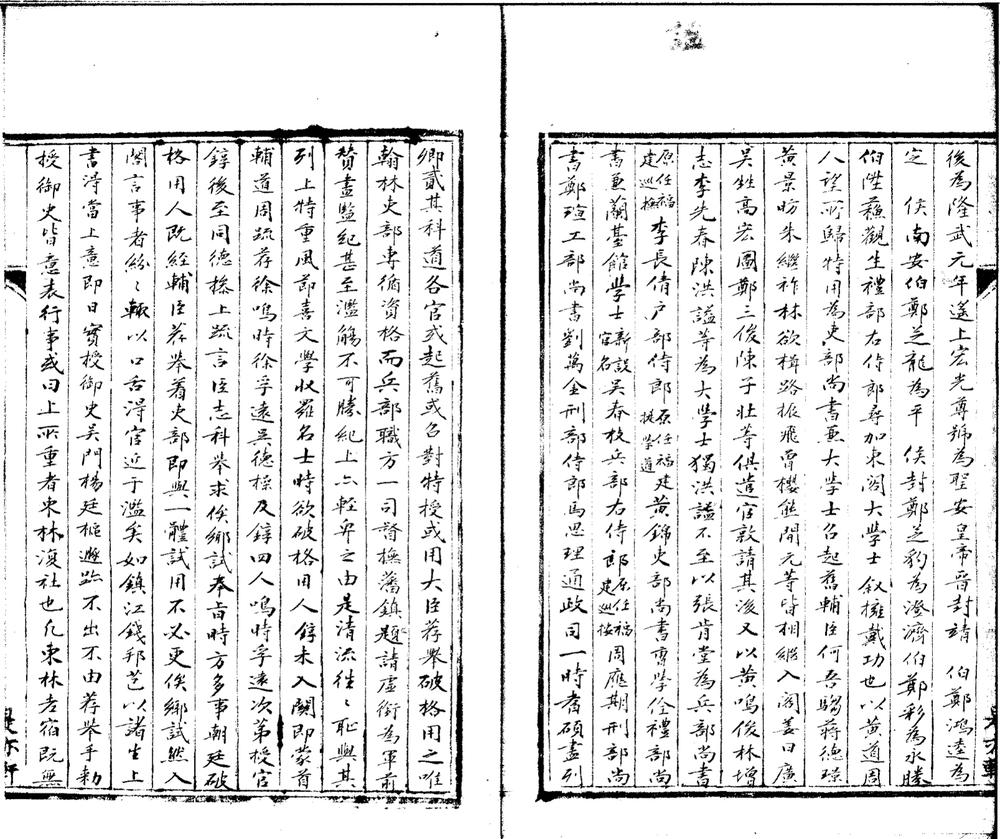 後為隆武元年遙上宏光尊號為聖安皇帝晉封靖 伯鄭鴻逵為
定 侯南安伯鄭芝龍為平 侯封鄭芝豹為澄濟伯鄭彩為永勝
伯陞蘇觀生禮部右侍郎尋加東閣大學士敘擁戴功也以黃道周
人望所歸特用為吏部尚書兼大學士召起舊輔臣何吾騶蔣德璟
黃景昉朱繼祚林欲楫路振飛曾櫻熊開元等皆相繼入閣姜曰廣
吳甡高宏圖鄭三俊陳子壯等俱遣官敦請其後又以黃鳴俊林增
志李先春陳洪謐等為大學士獨洪謐不至以張肯堂為兵部尚書
原任福建巡撫李長倩戶部侍郎原任福建提學道黃錦吏部尚書曹學佺禮部尚
書兼蘭臺館學士新設官名吳春枝兵部右侍郎原任福建巡按周應期刑部尚
書鄭瑄工部尚書劉萬全刑部侍郎馬思理通政司一時耆碩盡列
卿貳其科道各官或起舊或召對特授或用大臣荐舉破格用之唯
翰林吏部專循資格而兵部職方一司督撫藩鎮題請虛銜為軍前
贊畫監紀甚至濫觴不可勝紀上亦輕弃之由是清流往〻恥與其
列上特重風節喜文學收羅名士時欲破格用人錞未入關即蒙首
輔道周疏荐徐鳴時徐孚遠吳德操及錞四人鳴時孚遠次第授官
錞後至同德操上疏言臣志科舉求俟鄉試奉旨時方多事朝廷破
格用人既經輔臣荐舉着吏部即與一體試用不必更俟鄉試然入
閣言事者紛〻輒以口舌得官近于濫矣如鎮江錢邦芑以諸生上
書得當上意即日實授御史吳門楊廷樞遯跡不出不由荐舉手勅
授御史皆意表行事或曰上所重者東林復社也凡東林老宿既無